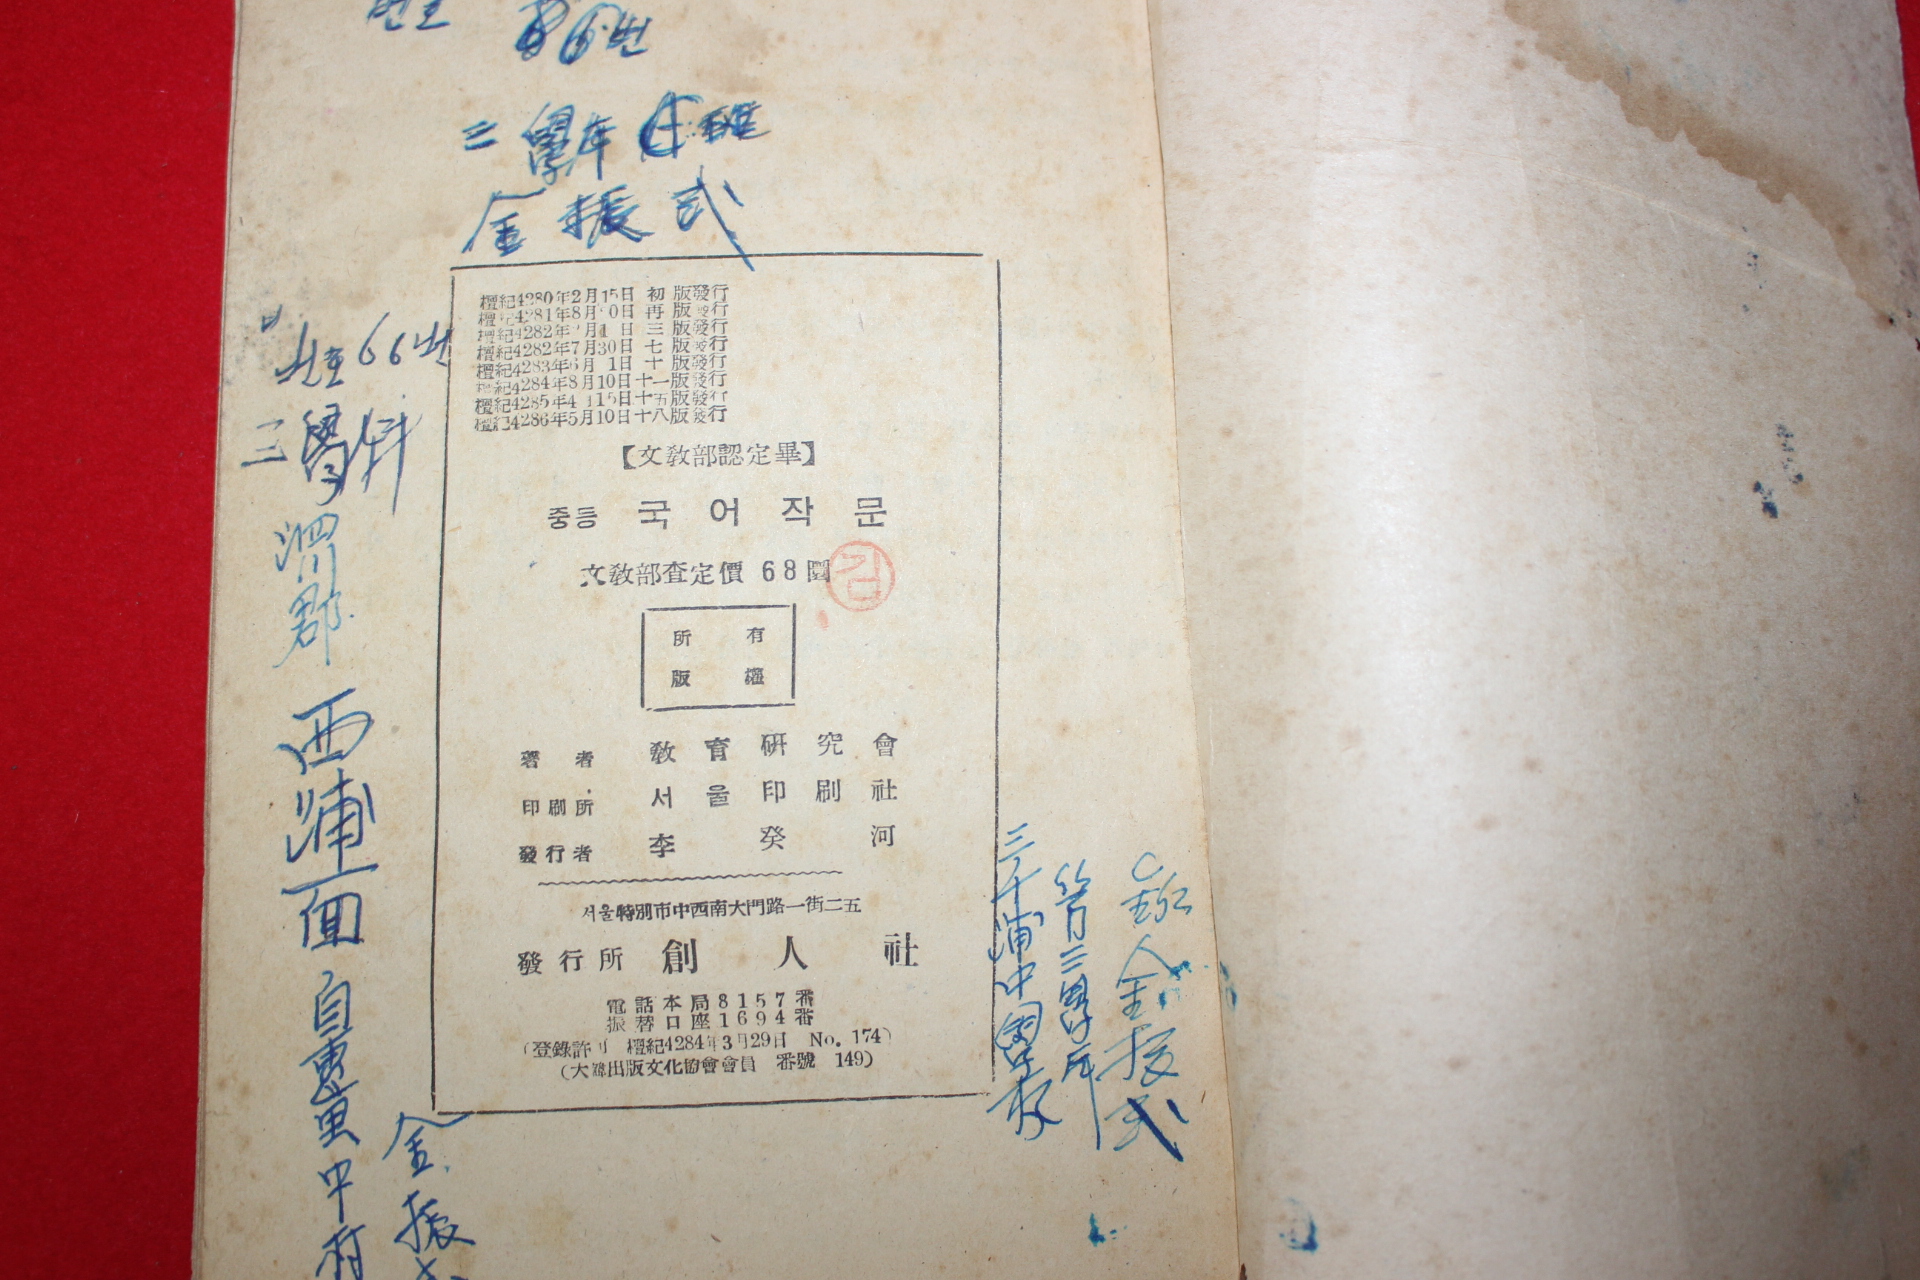 66번
三學年
金振式
檀紀4280年2月15日 初版發行
檀紀4281年8月 0日 再版發行
檀紀4282年 月1日 三版發行
檀紀4282年7月30日 七版發行
檀紀4283年6月 1日 十版發行
檀紀4284年8月10日 十一版發行
檀紀4285年4月15日 十五版發行
檀紀4286年5月10日 十八版發行
【文敎部認定畢】
중등 국어작문
文敎部査定價 68圜
김
所有
版權
著者 敎育硏究會
印刷所 서울印刷社
發行者 李癸河
서울特別市中西南大門路一街二五
發行所 創人社
電話本局8157番
振替口座1694番
(登錄許可 檀紀4284年3月29日 No. 174)
(大韓出版文化協會會員 番號 149)
번호 66번
三學年
泗川郡
西浦面
自惠里
金振
三千浦中學校
第三學年
班
金振式